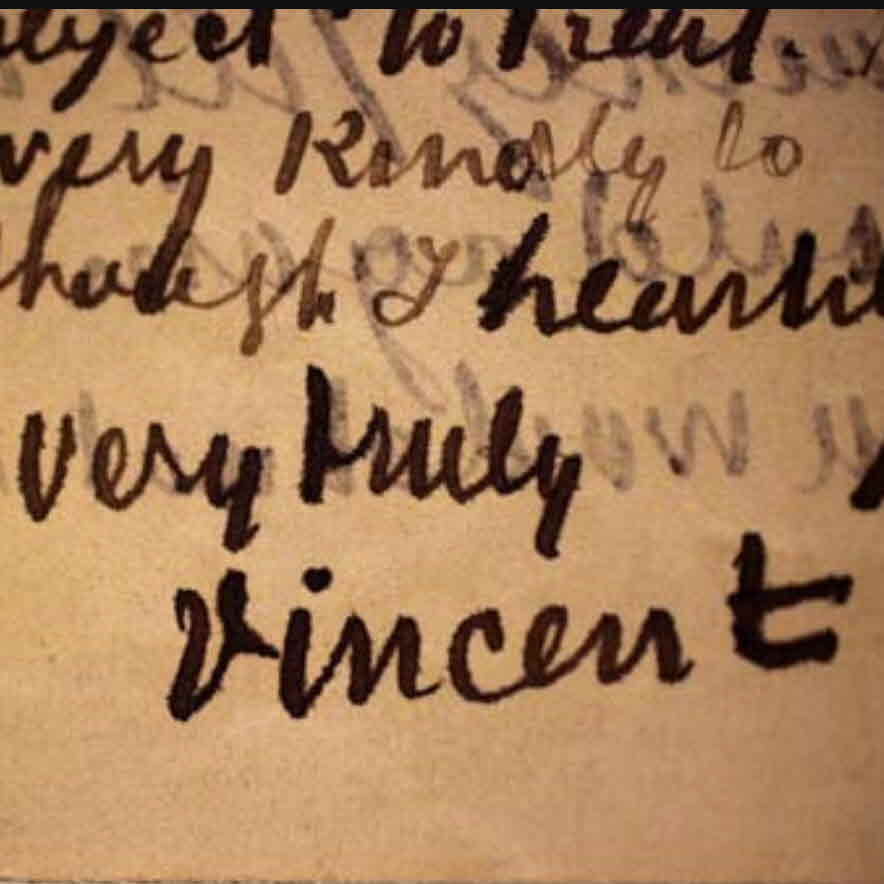 to treat.
very kindly to
though I
very truly
Vincent